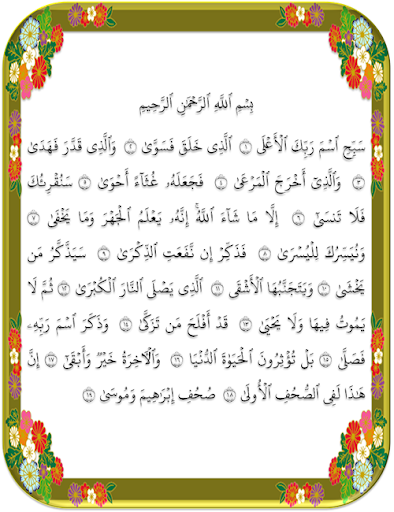 بِسْمِ ٱللَّهِ ٱلرَّحْمَٰنِ ٱلرَّحِيمِ
سَبِّحِ ٱسْمَ رَبِّكَ ٱلْأَعْلَى ۝١ ٱلَّذِى خَلَقَ فَسَوَّىٰ ۝٢ وَٱلَّذِى قَدَّرَ فَهَدَىٰ
۝٣ وَٱلَّذِىٓ أَخْرَجَ ٱلْمَرْعَىٰ ۝٤ فَجَعَلَهُۥ غُثَآءً أَحْوَىٰ ۝٥ سَنُقْرِئُكَ
فَلَا تَنسَىٰٓ ۝٦ إِلَّا مَا شَآءَ ٱللَّهُ ۚ إِنَّهُۥ يَعْلَمُ ٱلْجَهْرَ وَمَا يَخْفَىٰ ۝٧
وَنُيَسِّرُكَ لِلْيُسْرَىٰ ۝٨ فَذَكِّرْ إِن نَّفَعَتِ ٱلذِّكْرَىٰ ۝٩ سَيَذَّكَّرُ مَن
يَخْشَىٰ ۝١٠ وَيَتَجَنَّبُهَا ٱلْأَشْقَى ۝١١ ٱلَّذِى يَصْلَى ٱلنَّارَ ٱلْكُبْرَىٰ ۝١٢ ثُمَّ لَا
يَمُوتُ فِيهَا وَلَا يَحْيَىٰ ۝١٣ قَدْ أَفْلَحَ مَن تَزَكَّىٰ ۝١٤ وَذَكَرَ ٱسْمَ رَبِّهِۦ
فَصَلَّىٰ ۝١٥ بَلْ تُؤْثِرُونَ ٱلْحَيَوٰةَ ٱلدُّنْيَا ۝١٦ وَٱلْءَاخِرَةُ خَيْرٌ وَأَبْقَىٰٓ ۝١٧ إِنَّ
هَٰذَا لَفِى ٱلصُّحُفِ ٱلْأُولَىٰ ۝١٨ صُحُفِ إِبْرَٰهِيمَ وَمُوسَىٰ ۝١٩